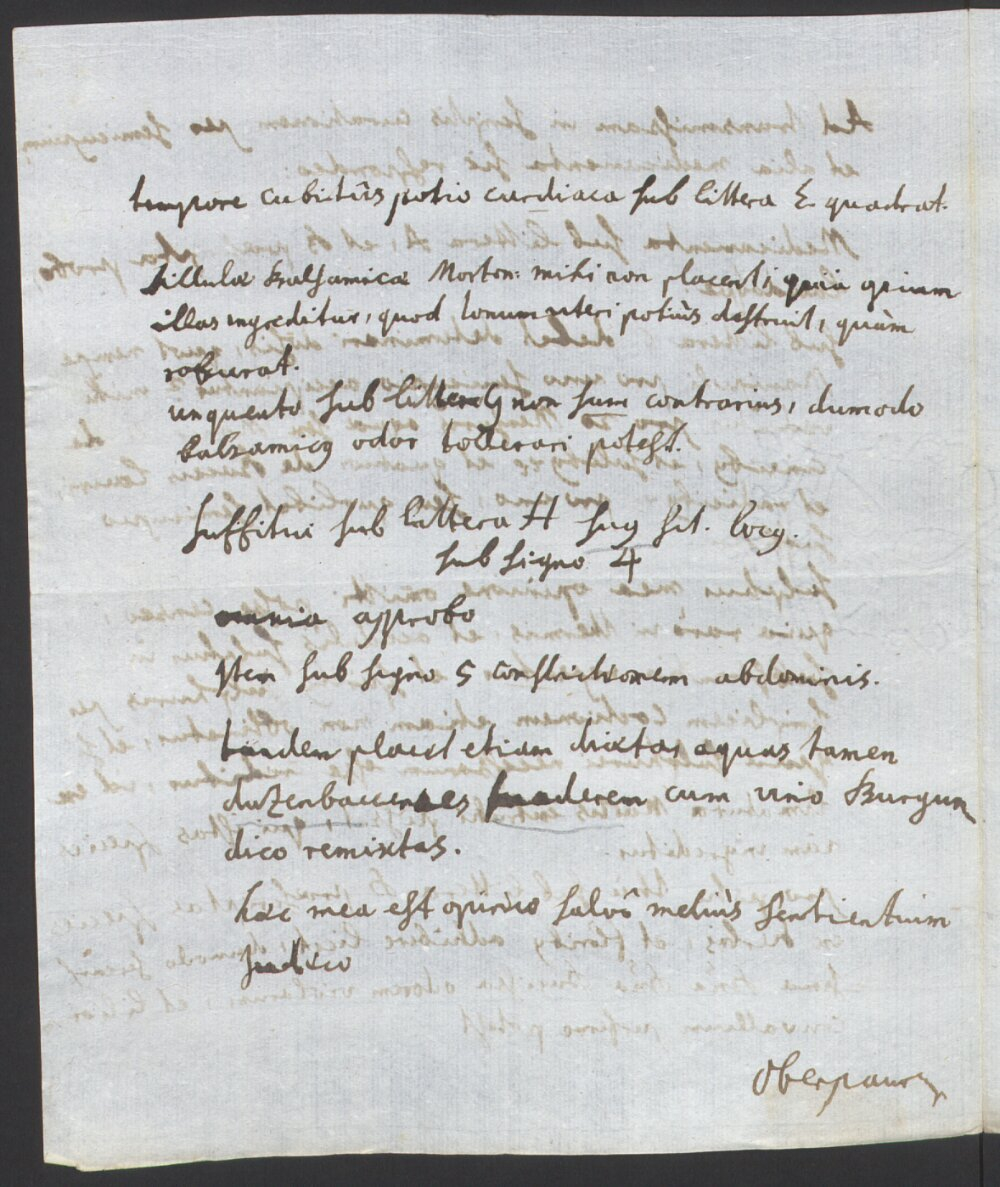 tempore cubitûs potio cardiaca sub littera E quadrat.
Pillulæ Balsamicæ Morton: mihi non placent, quia opium
illas ingreditur, quod tonum uteri potiùs destruit, quàm
roburat.
unguento sub littera G non sum contrarius, dumodo
balsamicg odor tollerari potest.
suffitui sub littera H sug sit. locg.
sub signo 4
omnia approbo
Item sub signo 5 constrictionem abdominis.
tandem placet etiam dictas aquas tamen
duzenbaccenses suaderem cum vino Burgun
dico remixtas.
hæc mea est opinio salvô meliùs sentientium
judicio
Oberpaur